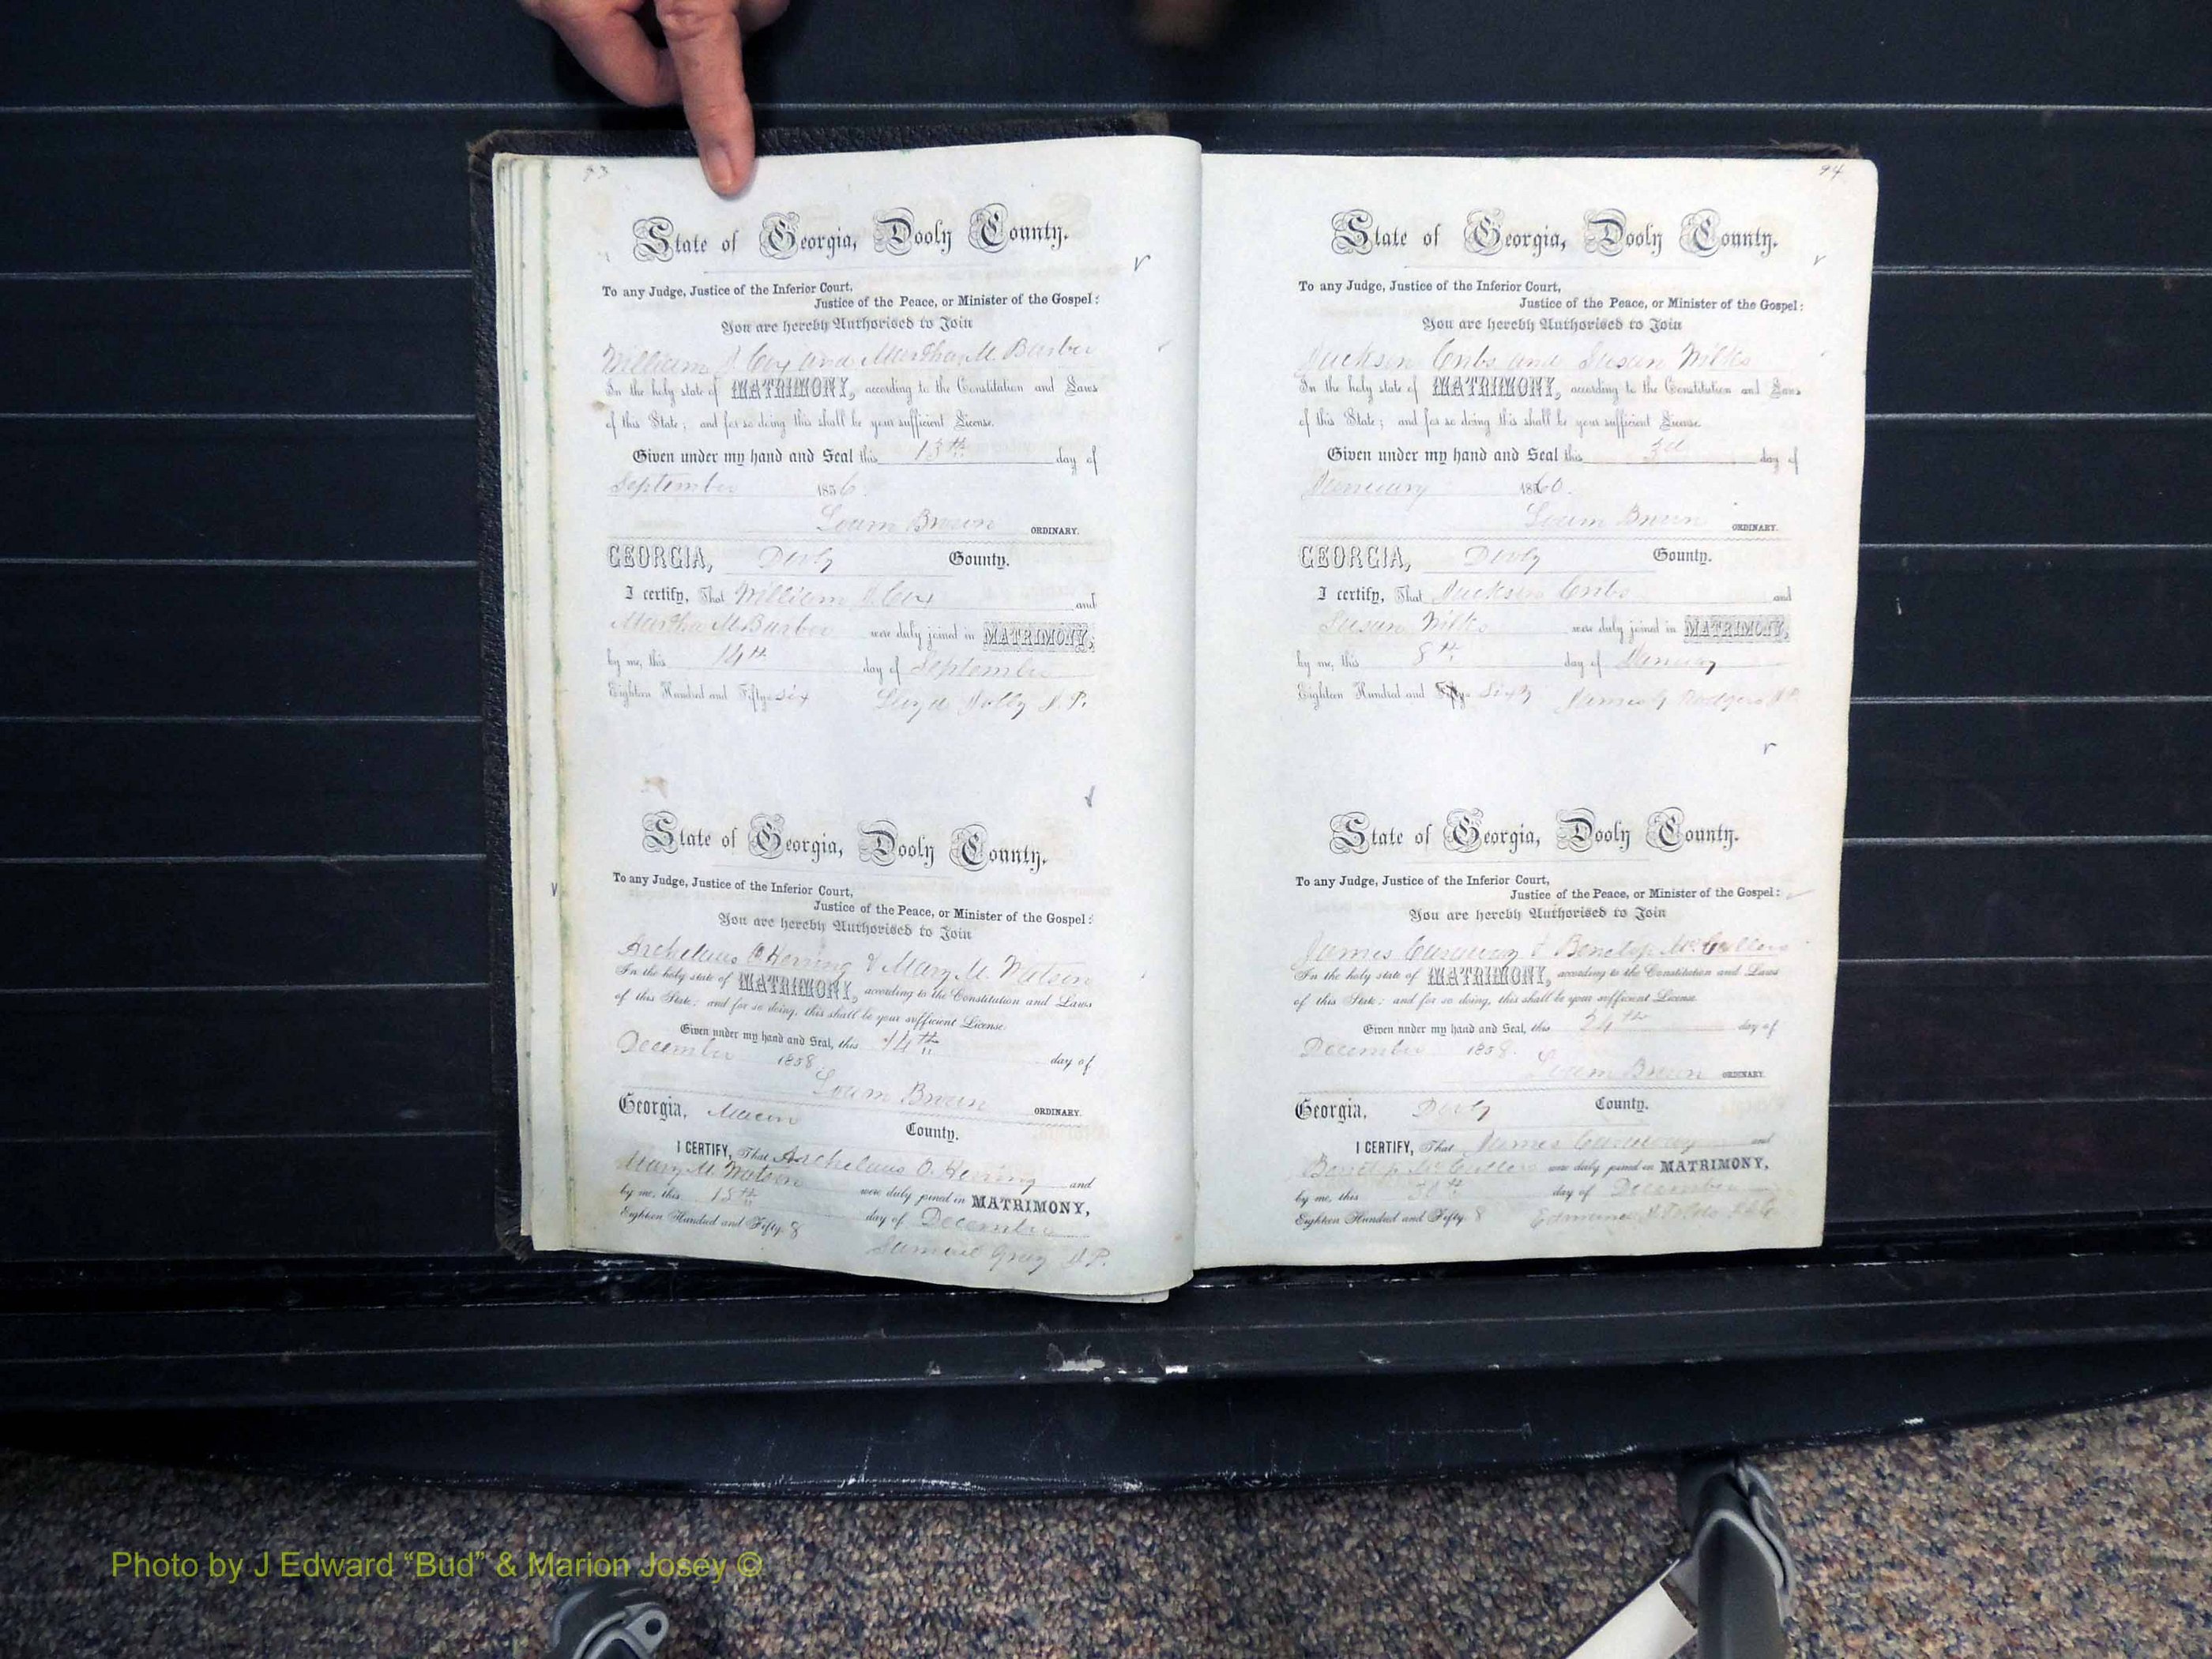 93
State of Georgia, Dooly County.
To any Judge, Justice of the Inferior Court,
Justice of the Peace, or Minister of the Gospel:
You are hereby Authorised to Join
William J Cox and Martha M. Barber
In the holy state of MATRIMONY, according to the Constitution and Laws
of this State; and for so doing this shall be your sufficient License.
Given under my hand and Seal this 13th day of
September 1856.
Brown ORDINARY.
GEORGIA, Dooly County.
I certify, That William J. Cox and
Martha M Barber were duly joined in MATRIMONY,
by me, this 14th day of September
Eighteen Hundred and Fifty-six Lloyd Jolly J.P.
State of Georgia, Dooly County.
To any Judge, Justice of the Inferior Court,
Justice of the Peace, or Minister of the Gospel:
You are hereby Authorised to Join
Archelaus O Herring & Mary M. Watson
In the holy state of MATRIMONY, according to the Constitution and Laws
of this State; and for so doing, this shall be your sufficient License.
Given under my hand and Seal, this 14th day of
December 1858.
Brown ORDINARY.
Georgia, Macon County.
I CERTIFY, That Archelaus O. Herring and
Mary M. Watson were duly joined in MATRIMONY,
by me, this 15th day of December
Eighteen Hundred and Fifty 8
Samuel Gray J.P.
94
State of Georgia, Dooly County.
To any Judge, Justice of the Inferior Court,
Justice of the Peace, or Minister of the Gospel:
You are hereby Authorised to Join
Jackson and Susan Wilks
In the holy state of MATRIMONY, according to the Constitution and Laws
of this State; and for so doing this shall be your sufficient License.
Given under my hand and Seal this 3rd day of
January 1860.
Brown ORDINARY.
GEORGIA, Dooly County.
I certify, That Jackson and
Susan Wilks were duly joined in MATRIMONY,
by me, this 8th day of January
Eighteen Hundred and Sixty James Rodgers J.P.
State of Georgia, Dooly County.
To any Judge, Justice of the Inferior Court,
Justice of the Peace, or Minister of the Gospel:
You are hereby Authorised to Join
James Caraway &
In the holy state of MATRIMONY, according to the Constitution and Laws
of this State; and for so doing, this shall be your sufficient License.
Given under my hand and Seal, this 24th day of
December 1858.
Brown ORDINARY.
Georgia, Dooly County.
I CERTIFY, That James Caraway and
were duly joined in MATRIMONY,
by me, this 30th day of December
Eighteen Hundred and Fifty 8
Photo by J Edward “Bud” & Marion Josey ©